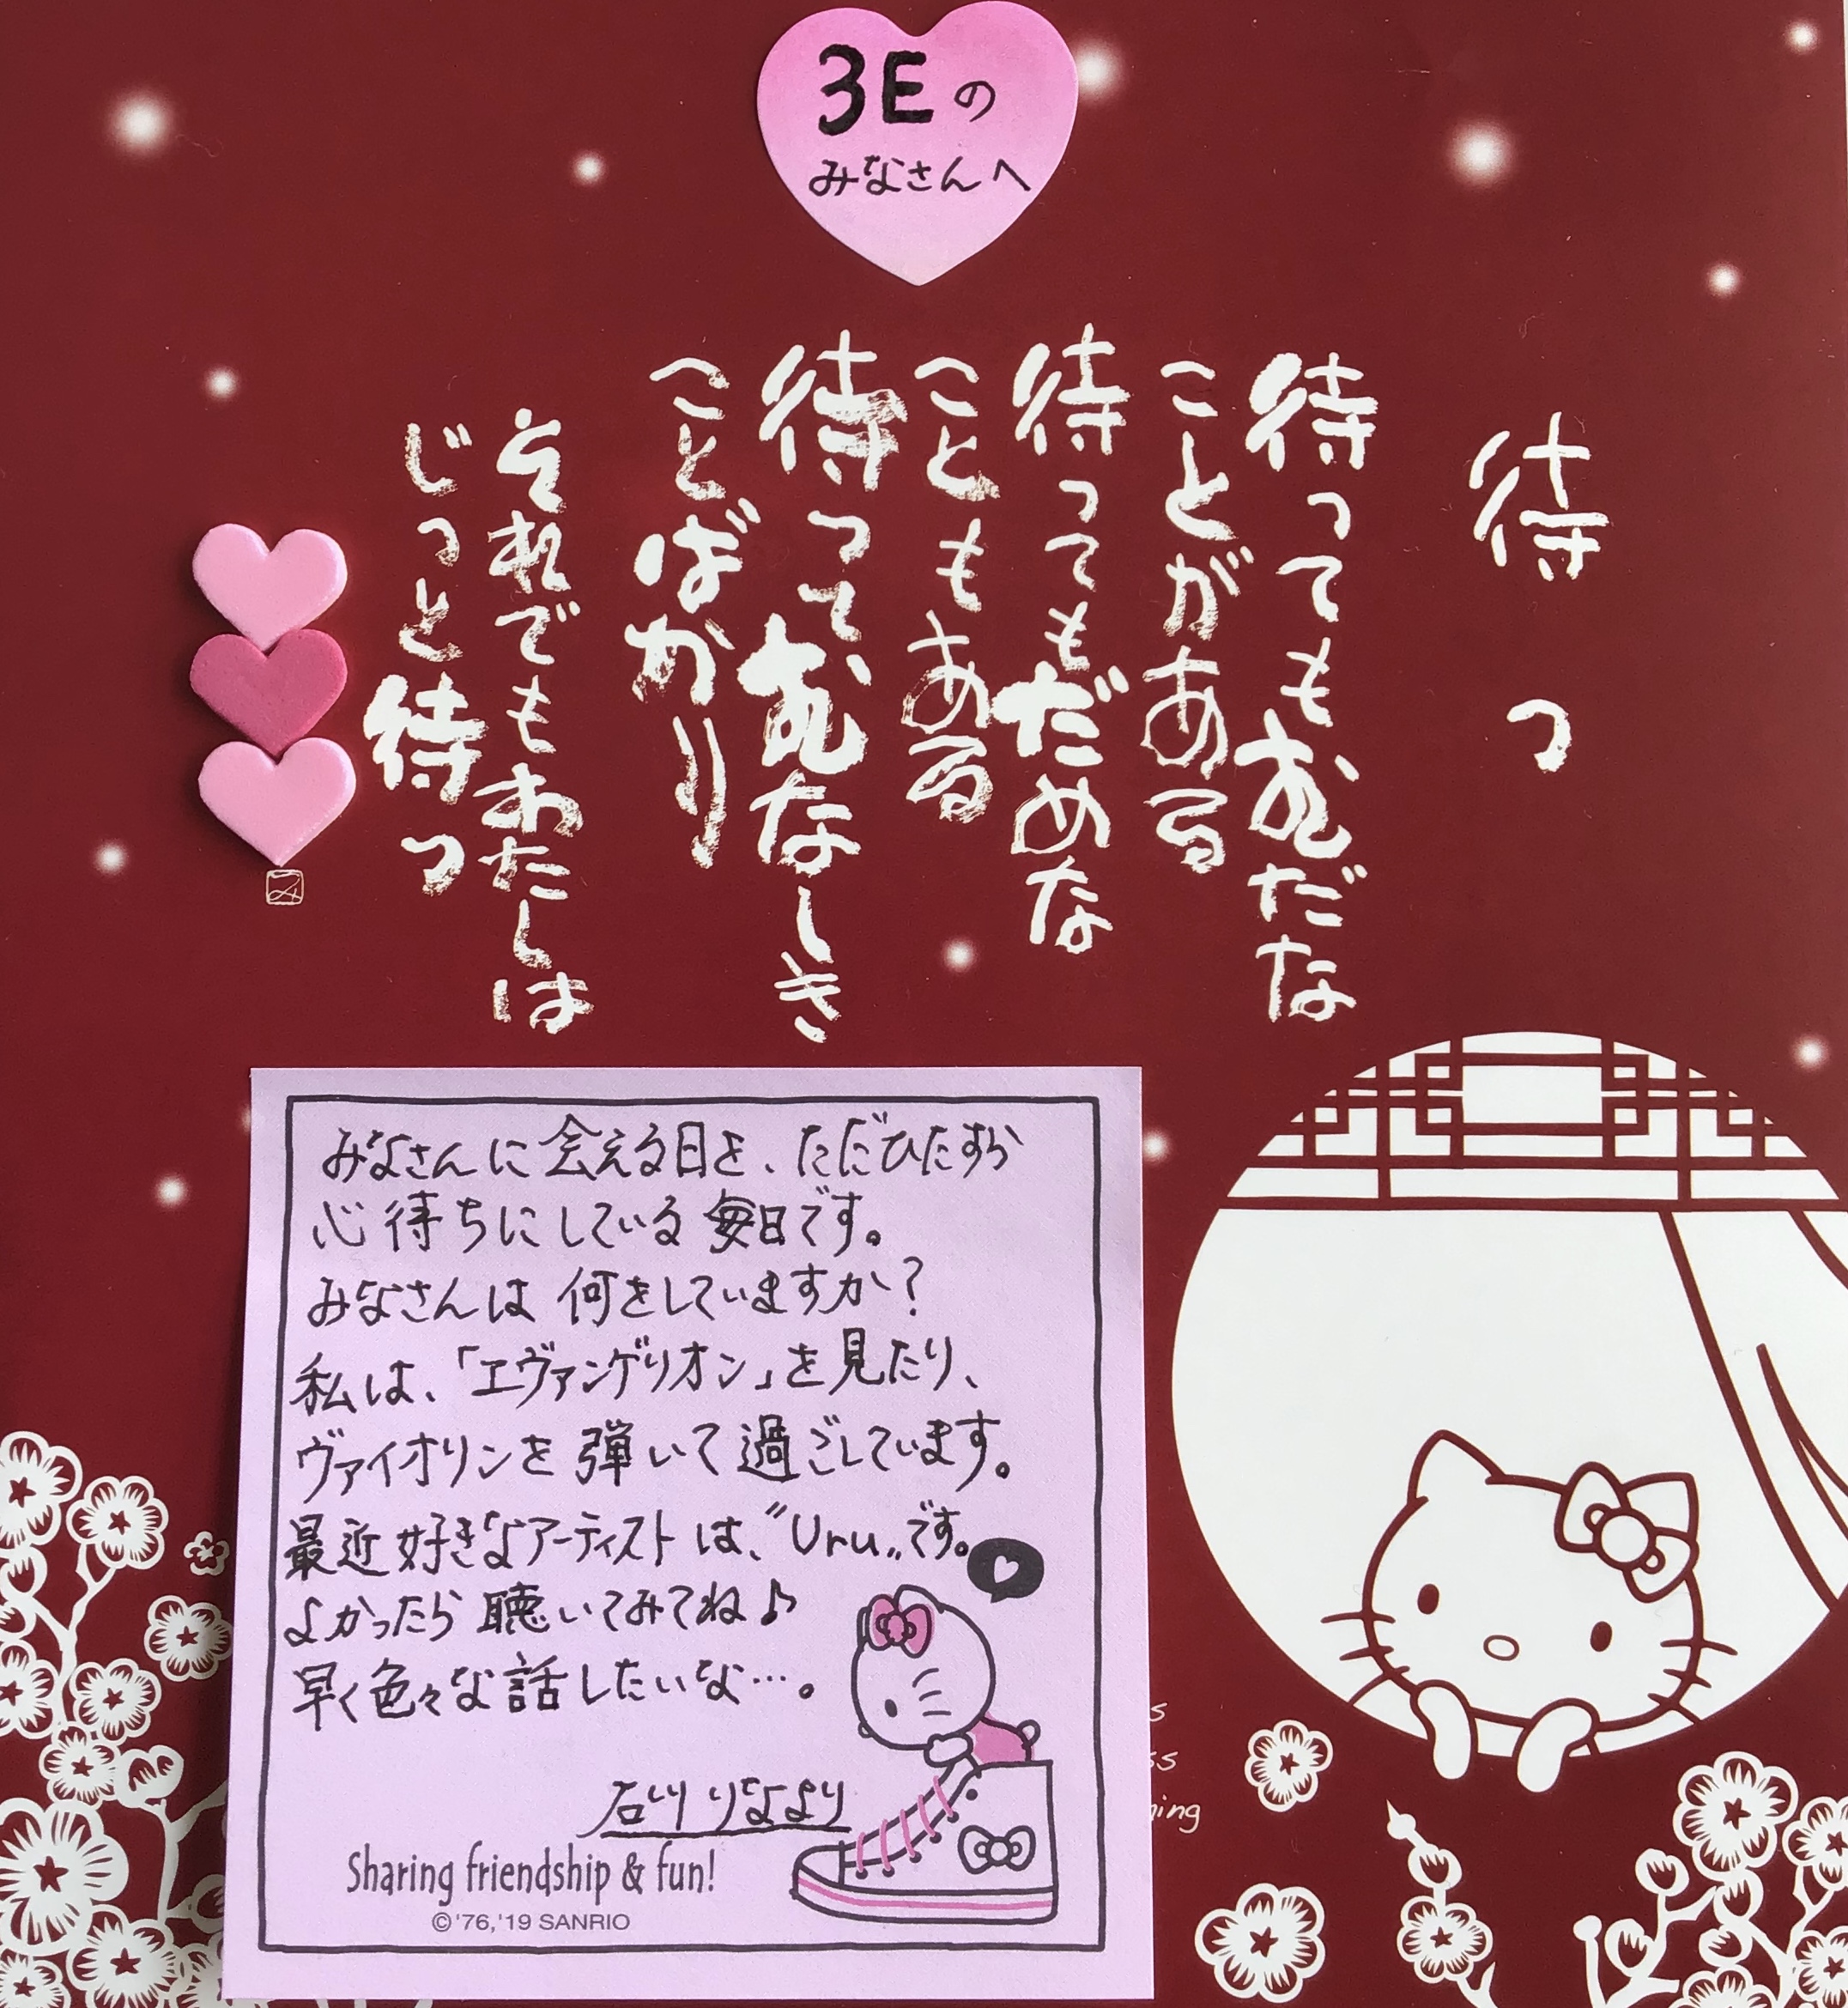 3Eの
みなさんへ
待つ
待ってもむだな
ことがある
待ってもだめな
こともある
待ってむなしき
ことばかり
それでもわたしは
じっと待つ
みなさんに会える日を、ただひたすら
心待ちにしている毎日です。
みなさんは何をしていますか?
私は、「エヴァンゲリオン」を見たり、
ヴァイオリンを弾いて過ごしています。
最近好きなアーティストは、〝Uru〟です。
よかったら聴いてみてね♪
早く色々な話したいな…。
石川りなより
Sharing friendship & fun!
©'76,'19 SANRIO